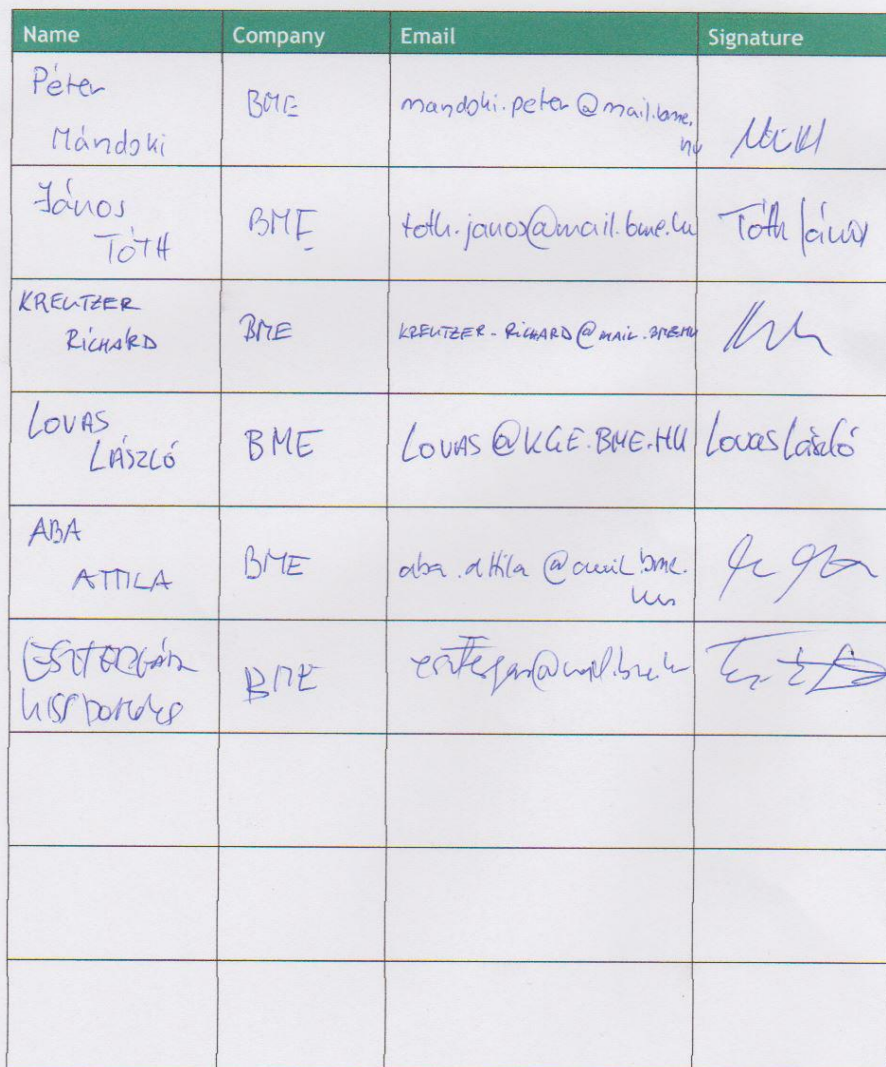 Name Company Email Signature
Péter
Mándoki
BME
mandoki.peter@mail.bme.
hu
János
TÓTH
BME
toth.janos@mail.bme.hu
Tóth János
KREUTZER
RICHÁRD
BME
KREUTZER-RICHARD@MAIL.BME.HU
LOVAS
LÁSZLÓ
BME
LOVAS@KGE.BME.HU
Lovas László
ABA
ATTILA
BME
aba.attila@mail.bme.
hu
BME